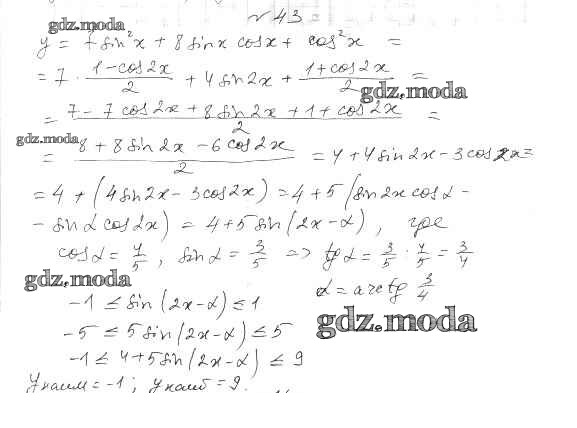 № 43
gdz.moda
y = 7 sin²x + 8 sinx cosx + cos²x =
= 7 · (1-cos2x)/2 + 4 sin2x + (1+cos2x)/2 =
gdz.moda
= (7 - 7 cos2x + 8 sin 2x + 1 + cos2x)/2 =
gdz.moda
= (8 + 8 sin 2x - 6 cos2x)/2 = 4 + 4 sin 2x - 3 cos 2x =
= 4 + (4 sin2x - 3cos2x) = 4 + 5 (sin2x cos α -
- sin α cos2x) = 4 + 5 sin (2x - α), где
cos α = 4/5, sin α = 3/5 => tg α = 3/5 · 5/4 = 3/4
gdz.moda
α = arctg 3/4
-1 ≤ sin (2x-α) ≤ 1
gdz.moda
-5 ≤ 5 sin (2x-α) ≤ 5
-1 ≤ 4+5 sin (2x-α) ≤ 9
y наим = -1; y наиб = 9.